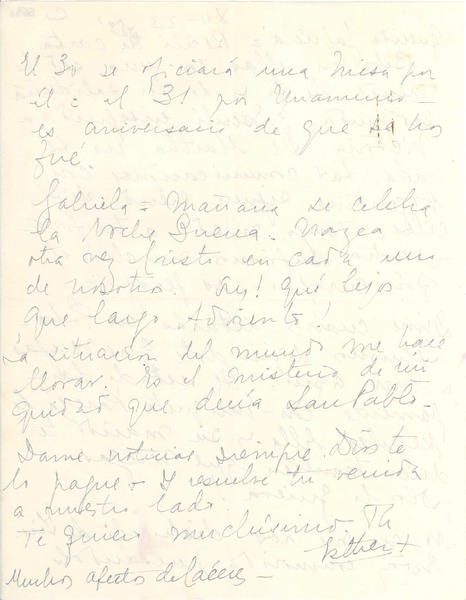 El 30 se oficiará una misa por
él = el 31 por Unamuno -
es aniversario de que se nos
fué.
Gabriela = Mañana se celebra
la Noche Buena. Nazca
otra vez Cristo en cada uno
de nosotros. Ay! Qué lejos
que largo Adviento!
La situación del mundo me hace
llorar. Es el misterio de ini
quidad que decía San Pablo -
Dame noticias siempre. Dios te
lo pague + y resuelve tu venida
a nuestro lado.
Te quiero muchísimo. Tu
Esther +
Muchos afectos de Cáceres -